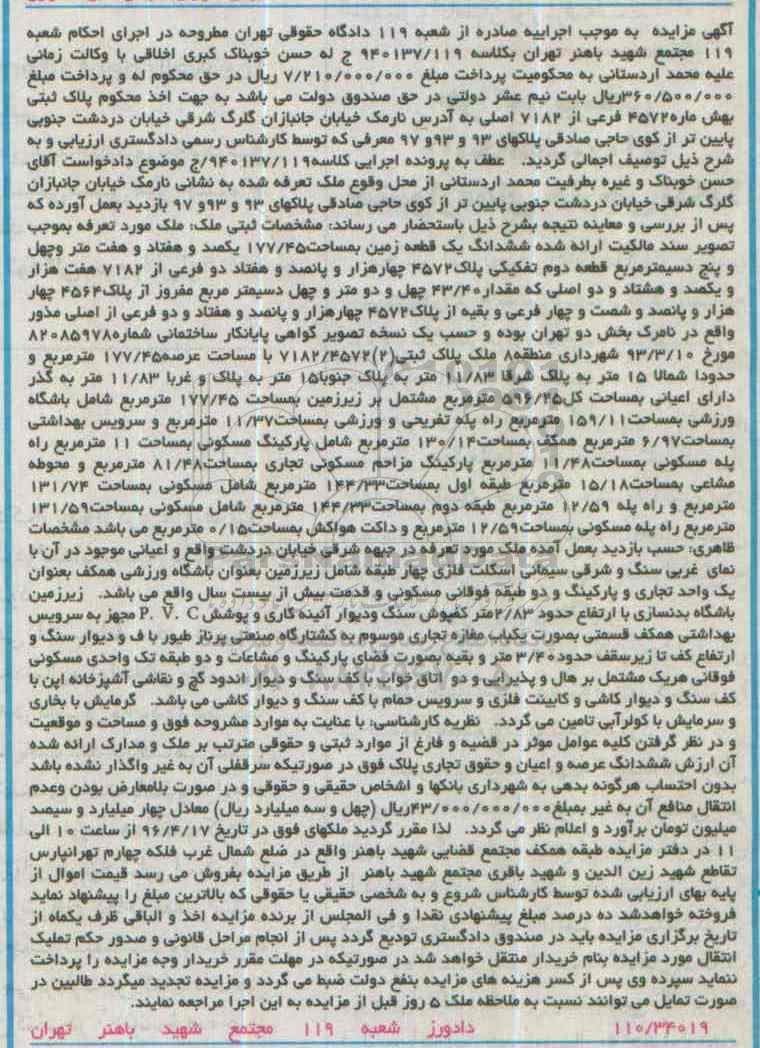 آگهی مزایده به موجب اجراییه صادره از شعبه ۱۱۹ دادگاه حقوقی تهران مطروحه در اجرای احکام شعبه
۱۱۹ مجتمع شهید باهنر تهران بکلاسه ۹۴۰۱۳۷/۱۱۹ ج له حسن خوبناک کبری اخلاقی با وکالت زمانی
علیه محمد اردستانی به محکومیت پرداخت مبلغ ۷/۲۱۰/۰۰۰/۰۰۰ ریال در حق محکوم له و پرداخت مبلغ
۳۶۰/۵۰۰/۰۰۰ریال بابت نیم عشر دولتی در حق صندوق دولت می باشد به جهت اخذ محکوم پلاک ثبتی
بهش ماره۴۵۷۲ فرعی از ۷۱۸۲ اصلی به آدرس نارمک خیابان جانبازان گلرگ شرقی خیابان دردشت جنوبی
پایین تر از کوی حاجی صادقی پلاکهای ۹۳ و ۹۳و ۹۷ معرفی که توسط کارشناس رسمی دادگستری ارزیابی و به
شرح ذیل توصیف اجمالی گردید. عطف به پرونده اجرایی کلاسه۹۴۰۱۳۷/۱۱۹/ج موضوع دادخواست آقای
حسن خوبناک و غیره بطرفیت محمد اردستانی از محل وقوع ملک تعرفه شده به نشانی نارمک خیابان جانبازان
گلرگ شرقی خیابان دردشت جنوبی پایین تر از کوی حاجی صادقی پلاکهای ۹۳ و ۹۳و ۹۷ بازدید بعمل آورده که
پس از بررسی و معاینه نتیجه بشرح ذیل باستحضار می رساند: مشخصات ثبتی ملک: ملک مورد تعرفه بموجب
تصویر سند مالکیت ارائه شده ششدانگ یک قطعه زمین بمساحت۱۷۷/۴۵ یکصد و هفتاد و هفت متر وچهل
و پنج دسیمترمربع قطعه دوم تفکیکی پلاک۴۵۷۲ چهارهزار و پانصد و هفتاد دو فرعی از ۷۱۸۲ هفت هزار
و یکصد و هشتاد و دو اصلی که مقدار۴۳/۴۰ چهل و دو متر و چهل دسیمتر مربع مفروز از پلاک۴۵۶۴ چهار
هزار و پانصد و شصت و چهار فرعی و بقیه از پلاک۴۵۷۲ چهارهزار و پانصد و هفتاد و دو فرعی از اصلی مذور
واقع در نامرک بخش دو تهران بوده و حسب یک نسخه تصویر گواهی پایانکار ساختمانی شماره۸۲۰۸۵۹۷۸
مورخ ۹۳/۳/۱۰ شهرداری منطقه۸ ملک پلاک ثبتی(۲)۷۱۸۲/۴۵۷۲ با مساحت عرصه۱۷۷/۴۵ مترمربع و
حدودا شمالا ۱۵ متر به پلاک شرقا ۱۱/۸۳ متر به پلاک جنوبا۱۵ متر به پلاک و غربا ۱۱/۸۳ متر به گذر
دارای اعیانی بمساحت کل۵۹۶/۲۵ مترمربع مشتمل بر زیرزمین بمساحت ۱۷۷/۴۵ مترمربع شامل باشگاه
ورزشی بمساحت۱۵۹/۱۱ مترمربع راه پله تفریحی و ورزشی بمساحت۱۱/۳۷ مترمربع و سرویس بهداشتی
بمساحت۶/۹۷ مترمربع همکف بمساحت۱۳۰/۱۴ مترمربع شامل پارکینگ مسکونی بمساحت ۱۱ مترمربع راه
پله مسکونی بمساحت۱۱/۴۸ مترمربع پارکینگ مزاحم مسکونی تجاری بمساحت۸۱/۴۸ مترمربع و محوطه
مشاعی بمساحت۱۵/۱۸ مترمربع طبقه اول بمساحت۱۴۴/۳۳ مترمربع شامل مسکونی بمساحت ۱۳۱/۷۴
مترمربع و راه پله ۱۲/۵۹ مترمربع طبقه دوم بمساحت۱۴۴/۳۳ مترمربع شامل مسکونی بمساحت۱۳۱/۵۹
مترمربع راه پله مسکونی بمساحت۱۲/۵۹ مترمربع و داکت هواکش بمساحت۰/۱۵ مترمربع می باشد مشخصات
ظاهری: حسب بازدید بعمل آمده ملک مورد تعرفه در جبهه شرقی خیابان دردشت واقع و اعیانی موجود در آن با
نمای غربی سنگ و شرقی سیمانی اسکلت فلزی چهار طبقه شامل زیرزمین بعنوان باشگاه ورزشی همکف بعنوان
یک واحد تجاری و پارکینگ و دو طبقه فوقانی مسکونی و قدمت بیش از بیست سال واقع می باشد. زیرزمین
باشگاه بدنسازی با ارتفاع حدود ۲/۸۳متر کفپوش سنگ ودیوار آئینه کاری و پوشش P. V. C مجهز به سرویس
بهداشتی همکف قسمتی بصورت یکباب مغازه تجاری موسوم به کشتارگاه صنعتی پرناز طیور با ف و دیوار سنگ و
ارتفاع کف تا زیرسقف حدود۳/۴۰ متر و بقیه بصورت فضای پارکینگ و مشاعات و دو طبقه تک واحدی مسکونی
فوقانی هریک مشتمل بر هال و پذیرایی و دو اتاق خواب با کف سنگ و دیوار اندود گچ و نقاشی آشپزخانه اپن با
کف سنگ و دیوار کاشی و کابینت فلزی و سرویس حمام با کف سنگ و دیوار کاشی می باشد. گرمایش با بخاری
و سرمایش با کولرآبی تامین می گردد. نظریه کارشناسی: با عنایت به موارد مشروحه فوق و مساحت و موقعیت
و در نظر گرفتن کلیه عوامل موثر در قضیه و فارغ از موارد ثبتی و حقوقی مترتب بر ملک و مدارک ارائه شده
آن ارزش ششدانگ عرصه و اعیان و حقوق تجاری پلاک فوق در صورتیکه سرقفلی آن به غیر واگذار نشده باشد
بدون احتساب هرگونه بدهی به شهرداری بانکها و اشخاص حقیقی و حقوقی و در صورت بلامعارض بودن وعدم
انتقال منافع آن به غیر بمبلغ۴۳/۰۰۰/۰۰۰/۰۰۰ریال (چهل و سه میلیارد ریال) معادل چهار میلیارد و سیصد
میلیون تومان برآورد و اعلام نظر می گردد. لذا مقرر گردید ملکهای فوق در تاریخ ۹۶/۴/۱۷ از ساعت ۱۰ الی
۱۱ در دفتر مزایده طبقه همکف مجتمع قضایی شهید باهنر واقع در ضلع شمال غرب فلکه چهارم تهرانپارس
تقاطع شهید زین الدین و شهید باقری مجتمع شهید باهنر از طریق مزایده بفروش می رسد قیمت اموال از
پایه بهای ارزیابی شده توسط کارشناس شروع و به شخصی حقیقی یا حقوقی که بالاترین مبلغ را پیشنهاد نماید
فروخته خواهدشد ده درصد مبلغ پیشنهادی نقدا و فی المجلس از برنده مزایده اخذ و الباقی ظرف یکماه از
تاریخ برگزاری مزایده باید در صندوق دادگستری تودیع گردد پس از انجام مراحل قانونی و صدور حکم تملیک
انتقال مورد مزایده بنام خریدار منتقل خواهد شد در صورتیکه در مهلت مقرر خریدار وجه مزایده را پرداخت
ننماید سپرده وی پس از کسر هزینه های مزایده بنفع دولت ضبط می گردد و مزایده تجدید میگردد طالبین در
صورت تمایل می توانند نسبت به ملاحظه ملک ۵ روز قبل از مزایده به این اجرا مراجعه نمایند.
۱۱۰/۳۴۰۱۹ دادورز شعبه ۱۱۹ مجتمع شهید باهنر تهران